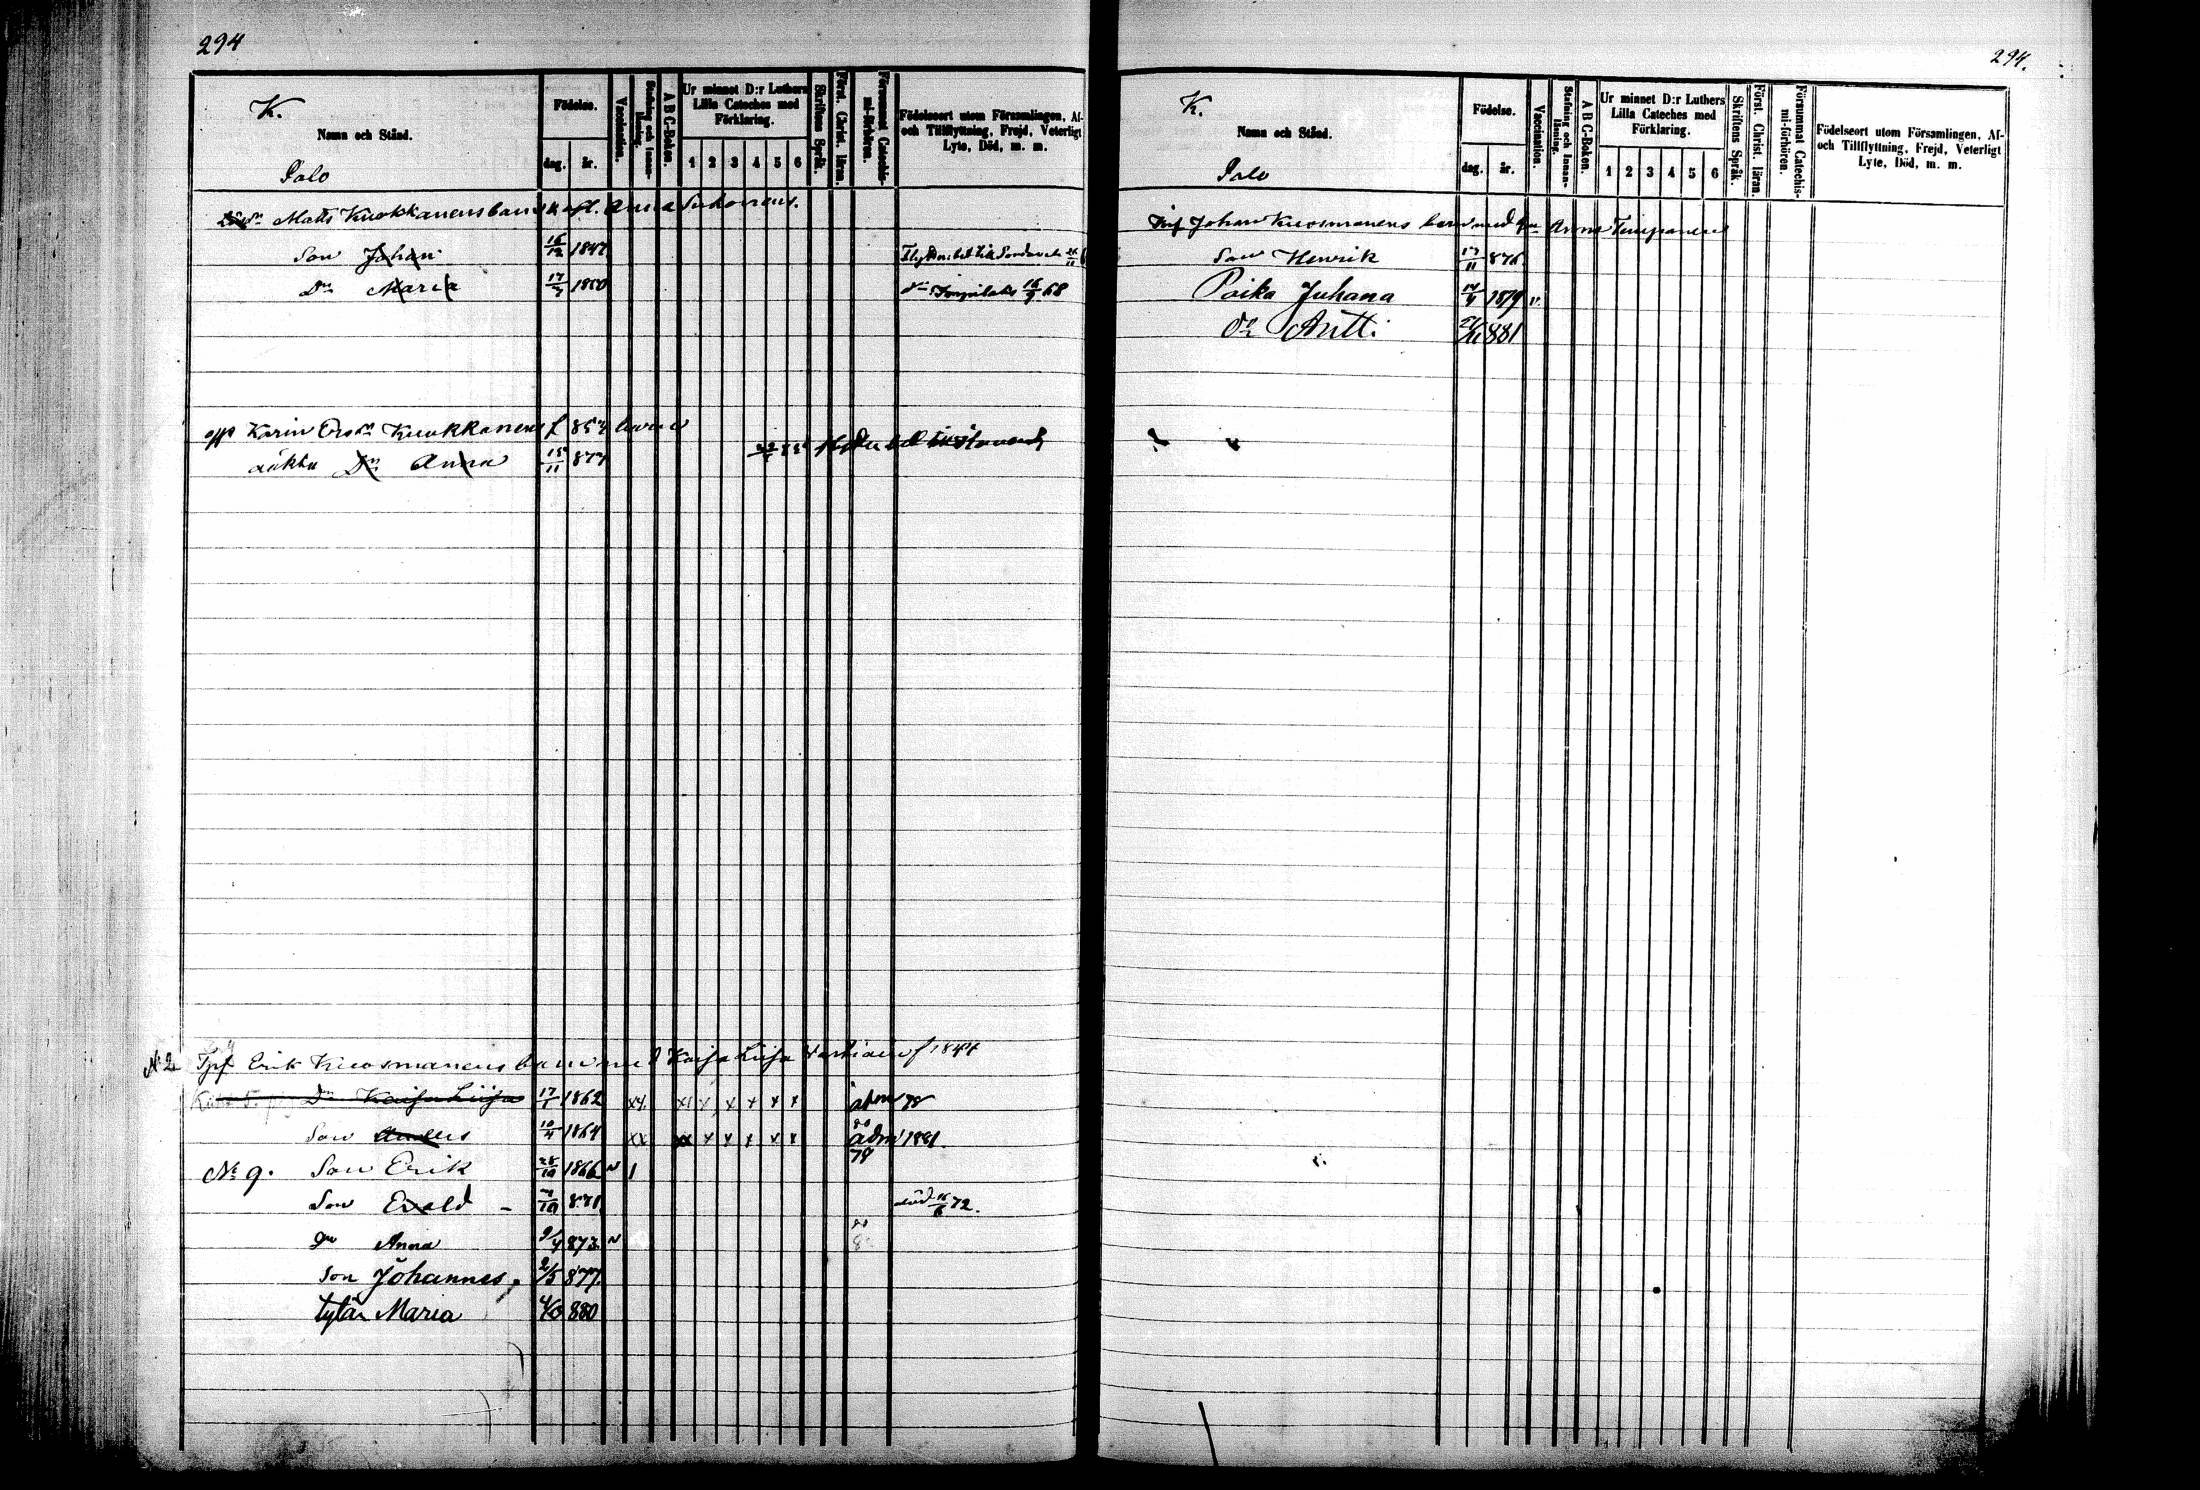 294
K.
Namn och Stånd.
Palo
Födelse.
dag. år.
Vaccination.
Stafning och Innan-läsning.
A B C-Boken.
Ur minnet D:r Luthers Lilla Cateches med Förklaring.
1 2 3 4 5 6
Skriftens Språk.
Först. Christ. läran.
Försummat Catechis-mi-förhören.
Födelseort utom Församlingen, Af- och Tillflyttning, Frejd, Veterligt Lyte, Död, m. m.
Matts Kuokkanens barn Anna
Son Johan 16/12 1847
Dr Maria 17/3 1850 16/9 68
Karin Kuokkanens f 857 barn
äkta Dr Anna 15/11 877
No 2 Erik Kuosmanens barn med Kaisa Liisa f 184
Dr Kaisa Liisa 17/1 1862 x x x x x x adm 78
Son Anders 10/4 1864 x x x x x x x x adm 1881
78
No 9. Son Erik 28/10 1866 v 1
Son Evald - 7/10 871 död 16/6 72.
Dr Anna 9/4 873 v
Son Johannes, 2/5 877.
tytär Maria 880
294.
K.
Namn och Stånd.
Palo
Födelse.
dag. år.
Vaccination.
Stafning och Innan-läsning.
A B C-Boken.
Ur minnet D:r Luthers Lilla Cateches med Förklaring.
1 2 3 4 5 6
Skriftens Språk.
Först. Christ. läran.
Försummat Catechis-mi-förhören.
Födelseort utom Församlingen, Af- och Tillflyttning, Frejd, Veterligt Lyte, Död, m. m.
Johan Kuosmanens barn med Anna
Son Henrik 17/11 876
Poika Juhana 1879 v.
do Antti 881